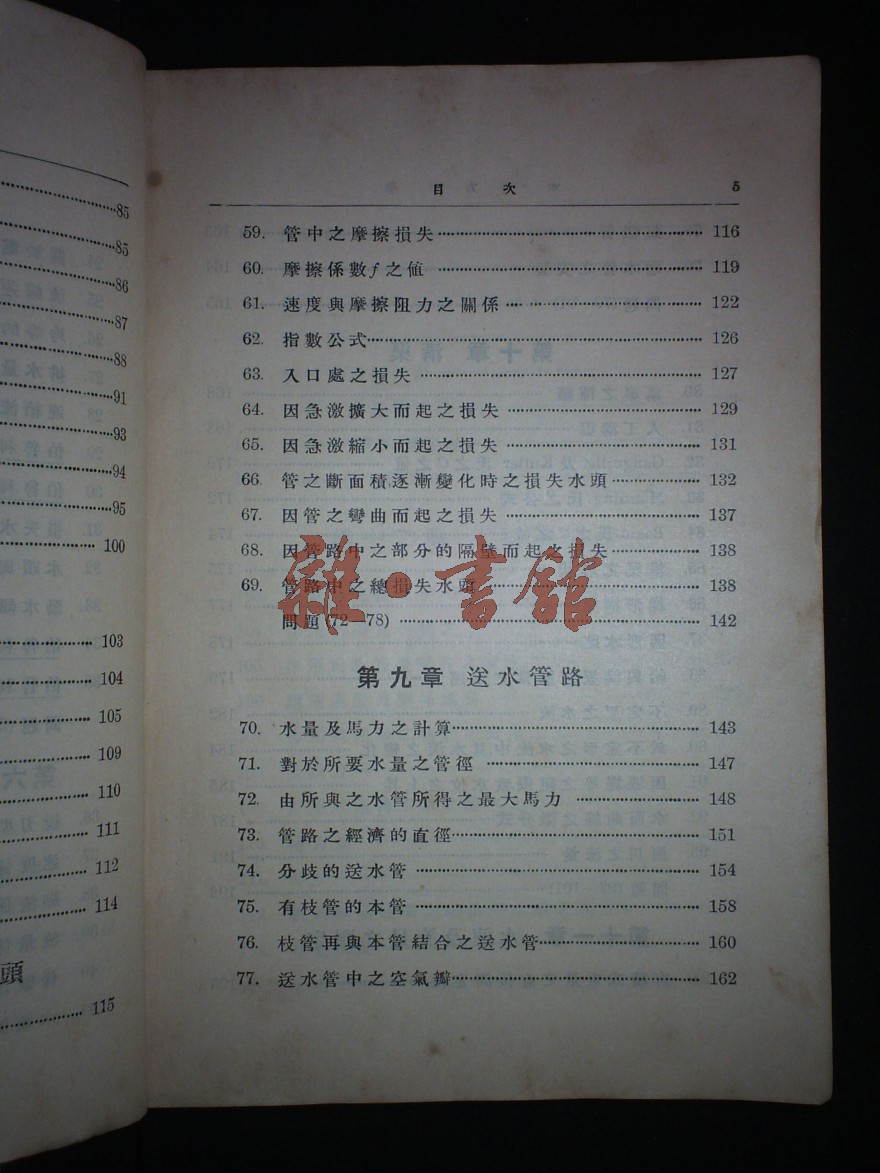 85
85
86
87
88
91
93
94
95
100
103
104
105
109
110
111
112
114
頭
115
目 次 5
59. 管中之摩擦損失 116
60. 摩擦係數f之値 119
61. 速度與摩擦阻力之關係 122
62. 指數公式 126
63. 入口處之損失 127
64. 因急激擴大而起之損失 129
65. 因急激縮小而起之損失 131
66. 管之斷面積逐漸變化時之損失水頭 132
67. 因管之彎曲而起之損失 137
68. 因管路中之部分的隔壁而起之損失 138
69. 管路中之總損失水頭 138
問題(72—78) 142
雜·書館
第九章 送水管路
70. 水量及馬力之計算 143
71. 對於所要水量之管徑 147
72. 由所與之水管所得之最大馬力 148
73. 管路之經濟的直徑 151
74. 分歧的送水管 154
75. 有枝管的本管 158
76. 枝管再與本管結合之送水管 160
77. 送水管中之空氣瓣 162